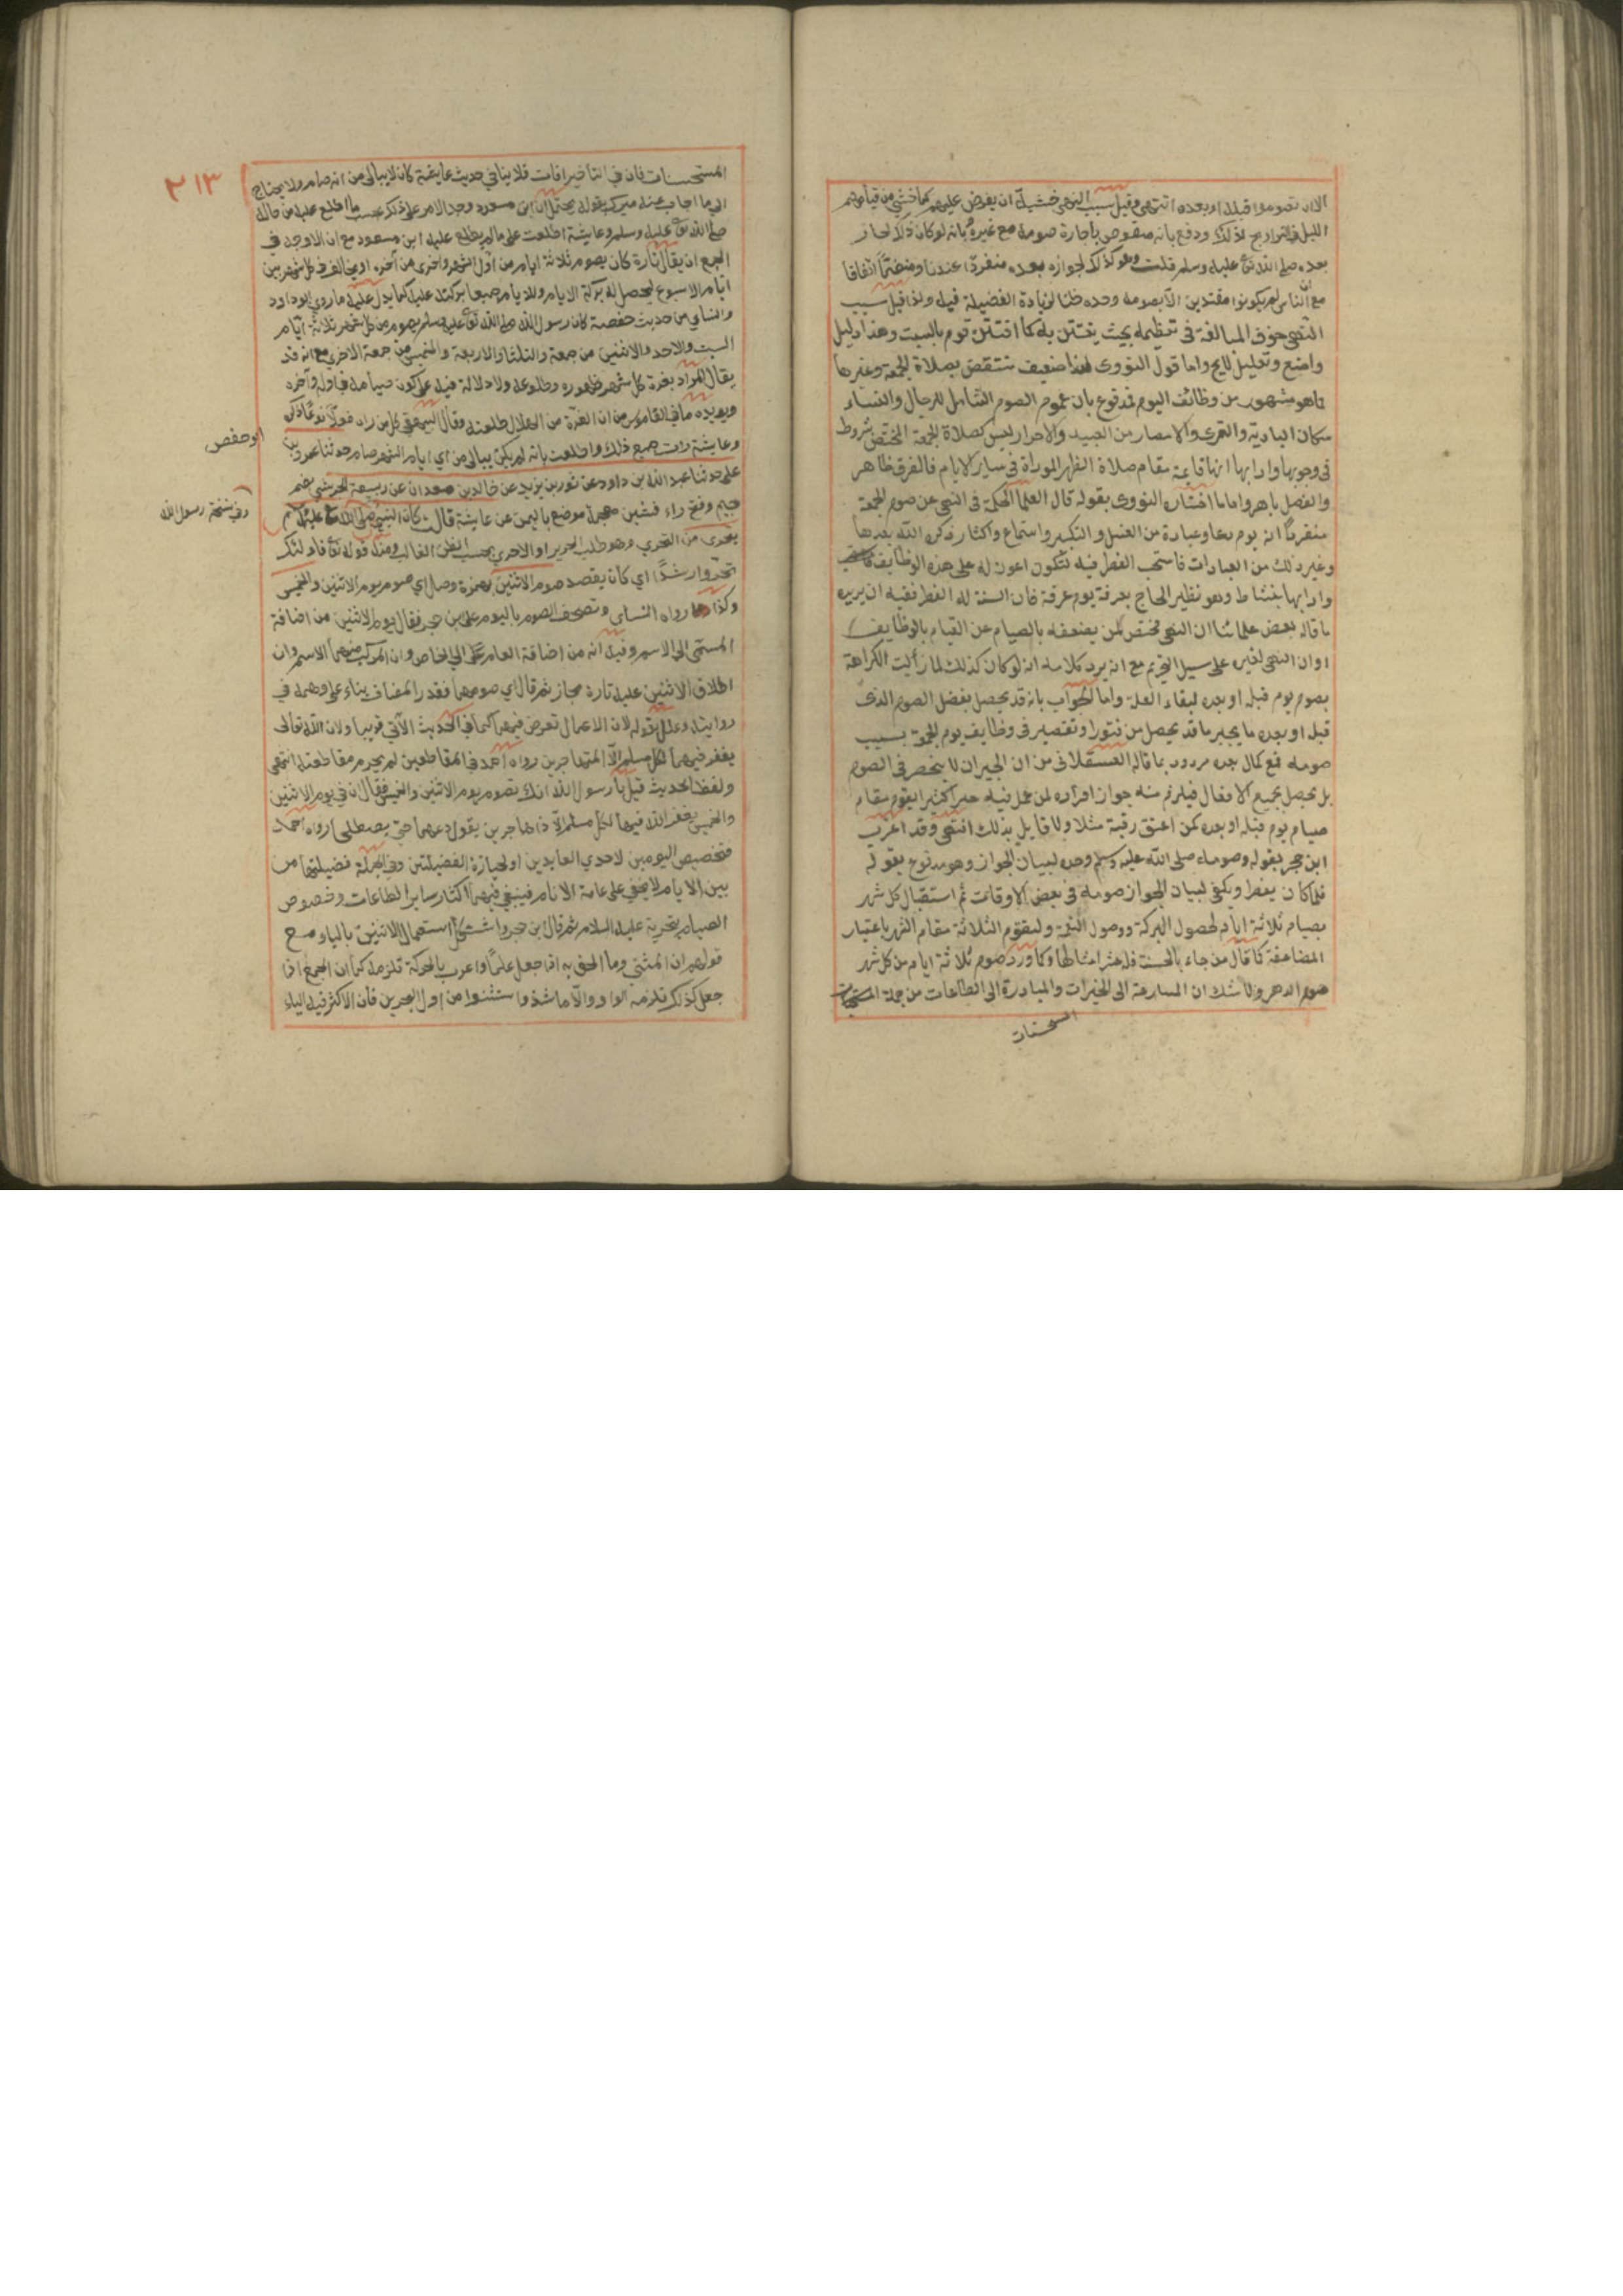 الا ان تصوموا قبله او بعده انتهى وقيل سبب النهى خشية ان يفرض عليهم كما خشي من قيامهم
الليل فى التراويح لذلك ودفع بانه منقوض باجازة صومه مع غيره وبانه لو كان ذلك لجاز
بعده صلى الله تع عليه وسلم قلت وهو كذلك لجوازه بعده منفردا عندنا ومنضما اتفاقا
مع ان الناس لم يكونوا مقتدين الا بصومه وحده ظنا لزيادة الفضيلة فيه ولذا قيل سبب
النهى خوف المبالغة فى تعظيمه بحيث يفتتن به كما افتتن قوم بالسبت وهذا دليل
واضح وتعليل لايح واما قول النووى هذا ضعيف منتقض بصلاة الجمعة وغيرها
مما هو مشهور من وظائف اليوم فمدفوع بان عموم الصوم الشامل للرجال والنساء
سكان البادية والقرى والامصار من العبيد والاحرار ليس كصلاة الجمعة المختص بشروط
فى وجوبها وادابها انها قايمة مقام صلاة الظهر المؤداة فى ساير الايام فالفرق ظاهر
والفصل باهر واما ما اختاره النووى بقوله قال العلما الحكمة فى النهى عن صوم الجمعة
منفردا انه يوم دعا وعبادة من الغسل والتبكير واستماع واكثار ذكر الله بعدها
وغير ذلك من العبادات فاستحب الفطر فيه لتكون اعون له على هذه الوظايف
وادابها بنشاط وهو نظير الحاج بعرفة يوم عرفة فان السنة له الفطر ففيه ان يريده
ما قاله بعض علمائنا ان النهى مختص لمن يضعفه بالصيام عن القيام بالوظايف
او ان النهى لغيره على سبيل التحريم مع انه يرد كلامه انه لو كان كذلك لما زالت الكراهة
بصوم يوم قبله او بعده لبقاء العلة واما الجواب بانه قد يحصل بفضل الصوم الذى
قبله او بعده ما يجبر ما قد يحصل من فتور او تقصير فى وظايف يوم الجمعة بسبب
صومه فمع كمال بعده مردود بما قاله العسقلانى من ان الجبران لا ينحصر فى الصوم
بل يحصل بجميع الافعال فيلزم منه جواز افراده لمن عمل فيه خيرا كثيرا يقوم مقام
صيام يوم قبله او بعده كمن اعتق رقبة مثلا ولا قايل بذلك انتهى وقد اغرب
ابن حجر بقوله وصومه صلى الله عليه وسلم وحده لبيان الجواز وهو مدفوع بقوله
قلما كان يفطر ويكفى لبيان الجواز صومه فى بعض الاوقات ثم استقبال كل شهر
بصيام ثلاثة ايام لحصول البركة ووصول النعمة وليقوم الثلاثة مقام الشهر باعتبار
المضاعفة كما قال من جاء بالحسنة فله عشر امثالها وكما ورد صوم ثلاثة ايام من كل شهر
صوم الدهر ولا شك ان المسارعة الى الخيرات والمبادرة الى الطاعات من جملة
٢١٣
المستحسنات فان فى التأخير افات فلا ينافي حديث عايشة كان لا يبالى من ايه صام ولا يحتاج
الى ما اجاب عنه ميرك بقوله يحتمل ان ابن مسعود وجد الامر على ذلك بحسب ما اطلع عليه من حاله
صلى الله تع عليه وسلم وعايشة اطلعت على ما لم يطلع عليه ابن مسعود مع ان الاوجه في
الجمع ان يقال تارة كان يصوم ثلاثة ايام من اول الشهر واخرى من اخره او يخالف فى كل شهر بين
ايام الاسبوع ليحصل له بركة الايام وللايام جميعا بركته عليه كما يدل عليه ما روى ابو داود
والنسايى من حديث حفصة كان رسول الله صلى الله تع عليه وسلم يصوم من كل شهر ثلاثة ايام
السبت والاحد والاثنين من جمعة والثلثا والاربعة والخميس من جمعة الاخرى مع انه قد
يقال المراد بغرة كل شهر ظهوره وطلوعه ولا دلالة فيه على كون صيامه فى اوله وآخره
ويؤيده ما في القاموس من ان الغرة من الهلال طلعته وقال البيهقى كل من راه فعل نوعا ذكره
وعايشة رات جميع ذلك واطلعت بانه لم يكن يبالى من اي ايام الشهر صام حدثنا عمرو بن
ابو حفص
على حدثنا عبد الله بن داود عن ثور بن يزيد عن خالد بن معدان عن ربيعة الجرشي بضم
جيم وفتح راء فشين معجمة موضع باليمن عن عايشة قالت كان النبي صلى الله تع عليه وسلم
وفي نسخة رسول الله
يتحرى من التحري وهو طلب الحري او الاحرى بحسب الظن الغالب ومنه قوله تع فاولئك
تحروا رشدا اي كان يقصد صوم الاثنين بهمزة وصل اي صوم يوم الاثنين والخميس
وكذا رواه النسائى وتصحف الصوم باليوم على بن حجر فقال يوم الاثنين من اضافة
المسمى الى الاسم وقيل انه من اضافة العام الى الخاص وان المركب منهما الاسم وان
اطلاق الاثنين عليه تارة مجاز ثم قال اي صومهما فقدر المضاف بناء على وهمه في
روايته وعلل بقوله لان الاعمال تعرض فيهما كما في الحديث الآتي قريبا ولان الله تعالى
يغفر فيهما لكل مسلم الا المتهاجرين رواه احمد في المقاطعين لم يحرم مقاطعته انتهى
ولفظ الحديث قيل يا رسول الله انك تصوم يوم الاثنين والخميس فقال ان في يوم الاثنين
والخميس يغفر الله فيهما لكل مسلم الا ذا هاجرين يقول دعهما حتى يصطلحا رواه احمد
فتخصيص اليومين لاحدي العابدين او لحيازة الفضيلتين وفي الجملة فضيلتهما من
بين الايام لا يخفى على عامة الانام فينبغي فيهما اكثار ساير الطاعات وخصوص
الصيام بتحرية عليه السلام ثم قال بن حجر واستشكل استعمال الاثنين بالياء مع
قولهم ان المثنى وما الحق به اذا جعل علما واعرب بالحركة تلزمه كما ان الجمع اذا
جعل كذلك تلزمه الواو والا ما شذ واستثنوا من اول البحرين فان الاكثر فيه الياء